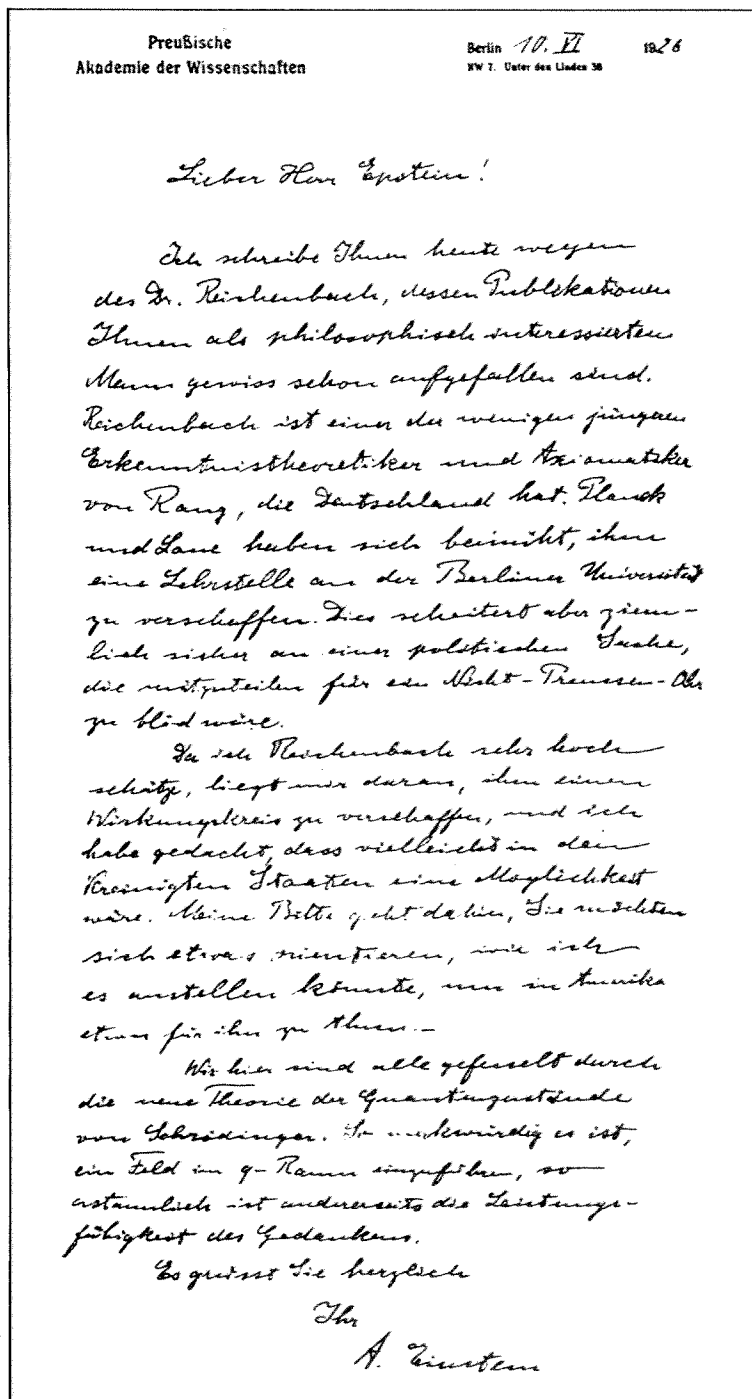 Preußische
Akademie der Wissenschaften
Berlin 10. VI 1926
NW 7. Unter den Linden 38
Lieber Herr Epstein!
Ich schreibe Ihnen heute wegen
des Dr. Reichenbach, dessen Publikationen
Ihnen als philosophisch interessierten
Mann gewiss schon aufgefallen sind.
Reichenbach ist einer der wenigen jüngeren
Erkenntnistheoretiker und Axiomatiker
von Rang, die Deutschland hat. Planck
und Laue haben sich bemüht, ihm
eine Lehrstelle an der Berliner Universität
zu verschaffen. Dies scheitert aber ziem-
lich sicher an einer politischen Sache,
die mitzuteilen für ein Nicht-Preussen-Ohr
zu blöd wäre.
Da ich Reichenbach sehr hoch
schätze, liegt mir daran, ihm einen
Wirkungskreis zu verschaffen, und ich
habe gedacht, dass vielleicht in den
Vereinigten Staaten eine Möglichkeit
wäre. Meine Bitte geht dahin, Sie möchten
sich etwas orientieren, wie ich
es anstellen könnte, um in Amerika
etwas für ihn zu thun.—
Wir hier sind alle gefesselt durch
die neue Theorie der Quantenzustände
von Schrödinger. So merkwürdig es ist,
ein Feld im q-Raum einzuführen, so
erstaunlich ist andererseits die Leistungs-
fähigkeit des Gedankens.
Es grüsst Sie herzlich
Ihr
A. Einstein